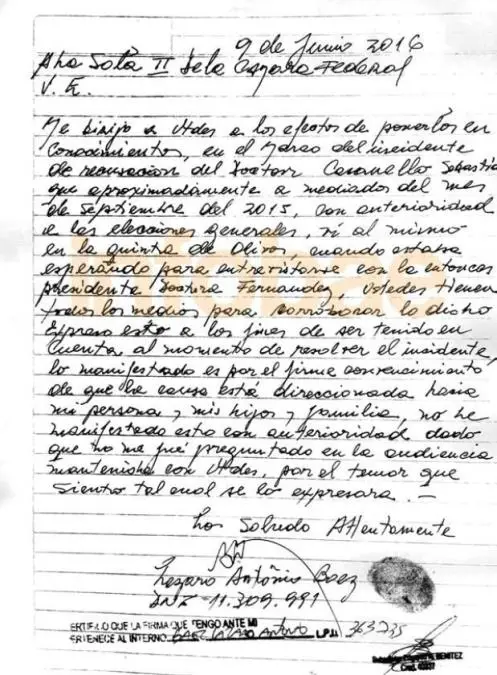 9 de Junio 2016
A la Sala II de la Camara Federal
V. E.
Me dirijo a Utdes a los efectos de ponerlos en
Conocimientos, en el Marco del incidente
de recusacion del Doctor Casanello Sebastia
que aproximadamente a mediados del mes
de Septiembre del 2015, con anterioridad
a las elecciones generales, vi al mismo
en la quinta de Olivos, cuando estaba
esperando para entrevistarse con la entonces
presidenta Doctora Fernandez, Ustedes tienen
todos los medios para corroborar lo dicho
Expreso esto a los fines de ser tenido en
Cuenta al momento de resolver el incidente,
lo manifestado es por el firme convencimiento
de que la causa está direccionada hacia
mi persona, mis hijos y familia, no he
manifestado esto con anterioridad dado
que no me fué preguntado en la audiencia
mantenida con Utdes, por el temor que
siento tal cual se lo expresara.-
Los Saludo Attentamente
Lazaro Antônio Baez
DNI 11.309.991
CERTIFICO QUE LA FIRMA QUE TENGO ANTE MI
PERTENECE AL INTERNO BAEZ Lazaro Antonio L.P.U. 363.235
BENITEZ
infobae